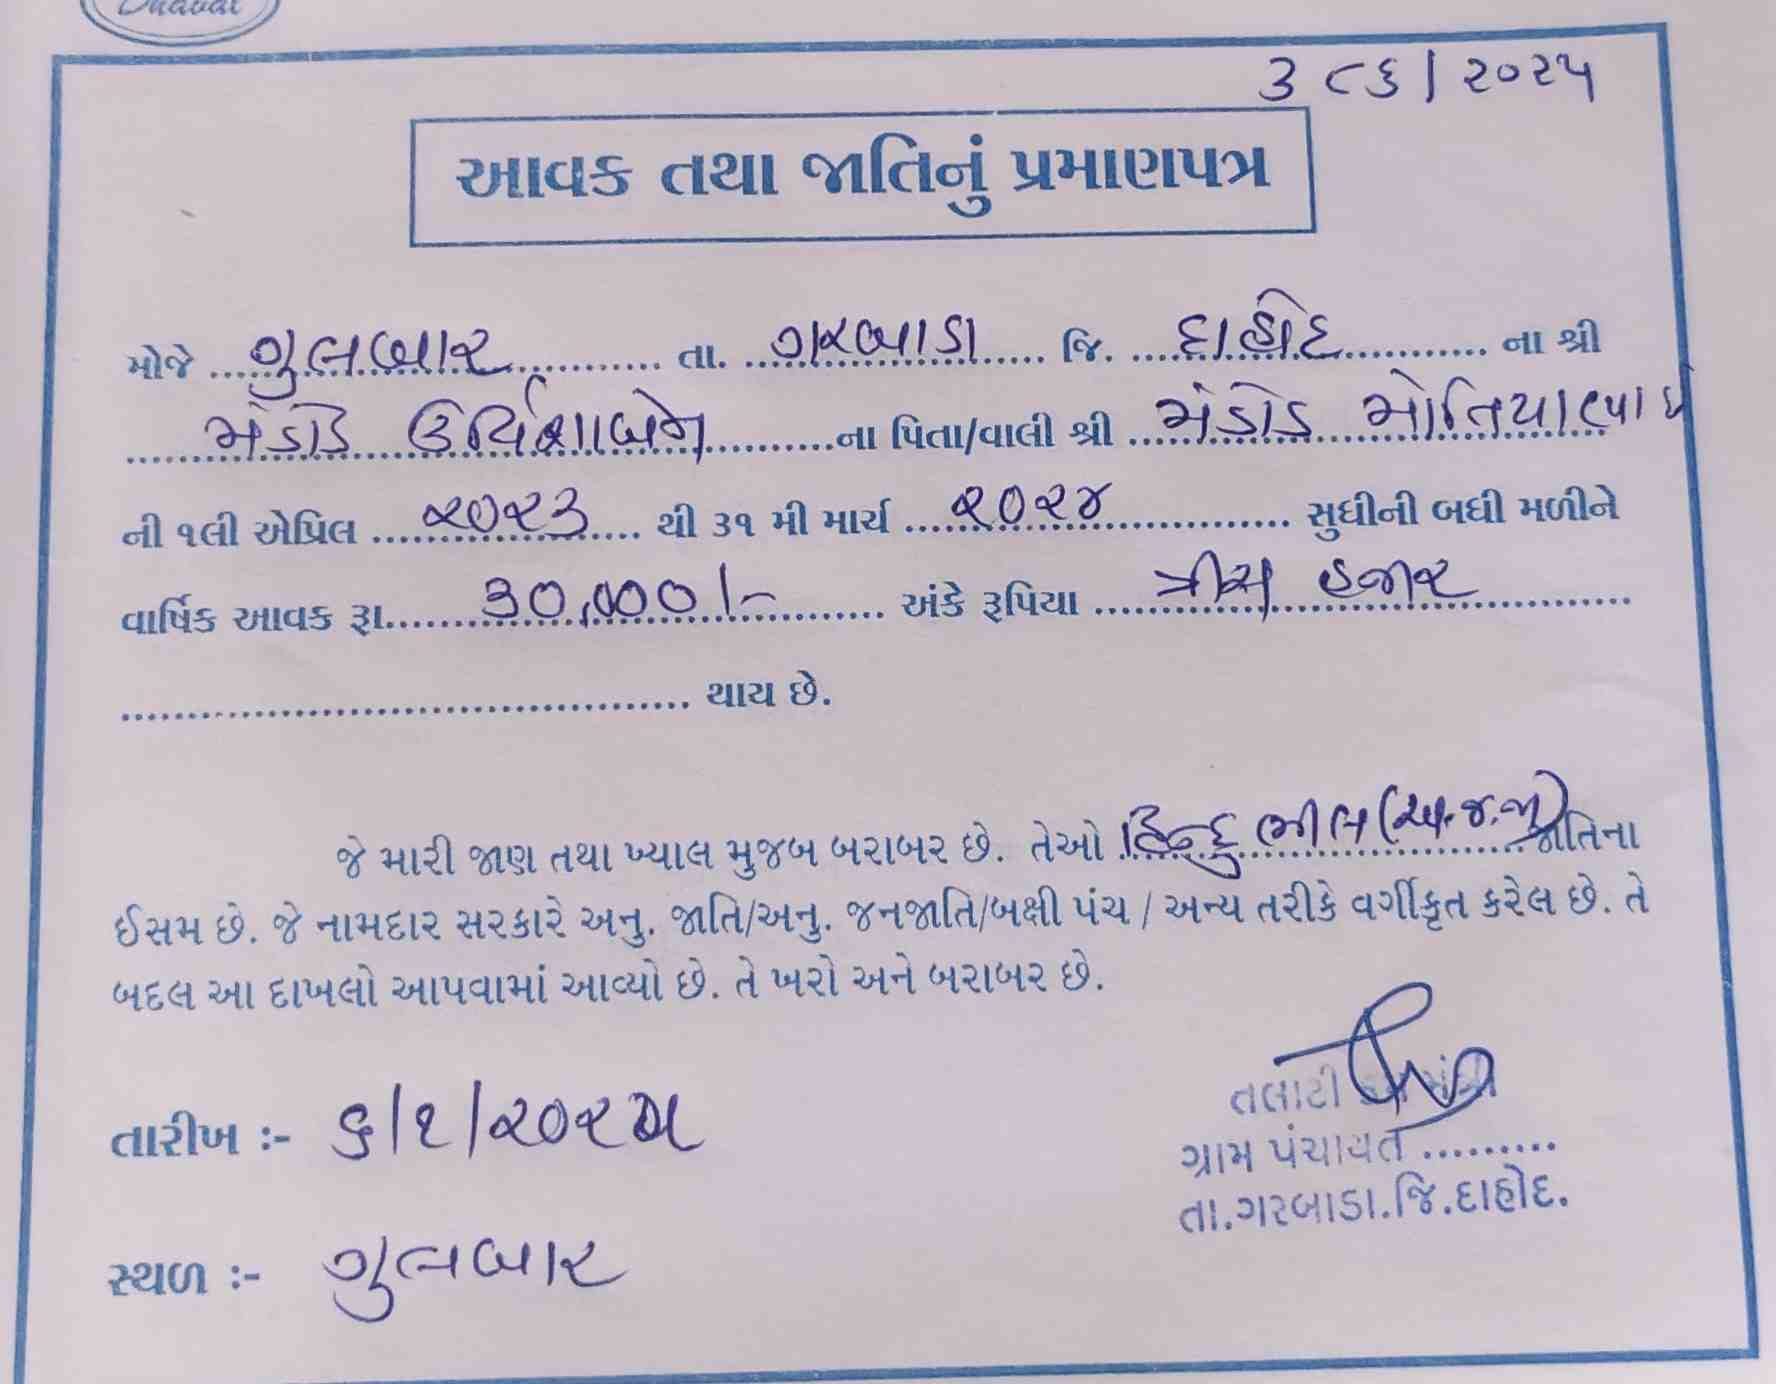 Dhaval
૩૮૬/૨૦૨૫
આવક તથા જાતિનું પ્રમાણપત્ર
મોજે ગુલબાર તા. ગરબાડા જિ. દાહોદ ના શ્રી
મંડોડ ઉર્વિશાબેન ના પિતા/વાલી શ્રી મંડોડ મોતિયાભાઈ
ની ૧લી એપ્રિલ ૨૦૨૩ થી ૩૧ મી માર્ચ ૨૦૨૪ સુધીની બધી મળીને
વાર્ષિક આવક રૂા. ૩૦,૦૦૦/- અંકે રૂપિયા ત્રીસ હજાર
થાય છે.
જે મારી જાણ તથા ખ્યાલ મુજબ બરાબર છે. તેઓ હિન્દુ ભીલ (અ.જ.જા) જાતિના
ઈસમ છે. જે નામદાર સરકારે અનુ. જાતિ/અનુ. જનજાતિ/બક્ષી પંચ / અન્ય તરીકે વર્ગીકૃત કરેલ છે. તે
બદલ આ દાખલો આપવામાં આવ્યો છે. તે ખરો અને બરાબર છે.
તલાટી
તારીખ :- ૬/૧/૨૦૨૫
ગ્રામ પંચાયત .........
તા.ગરબાડા.જિ.દાહોદ.
સ્થળ :- ગુલબાર